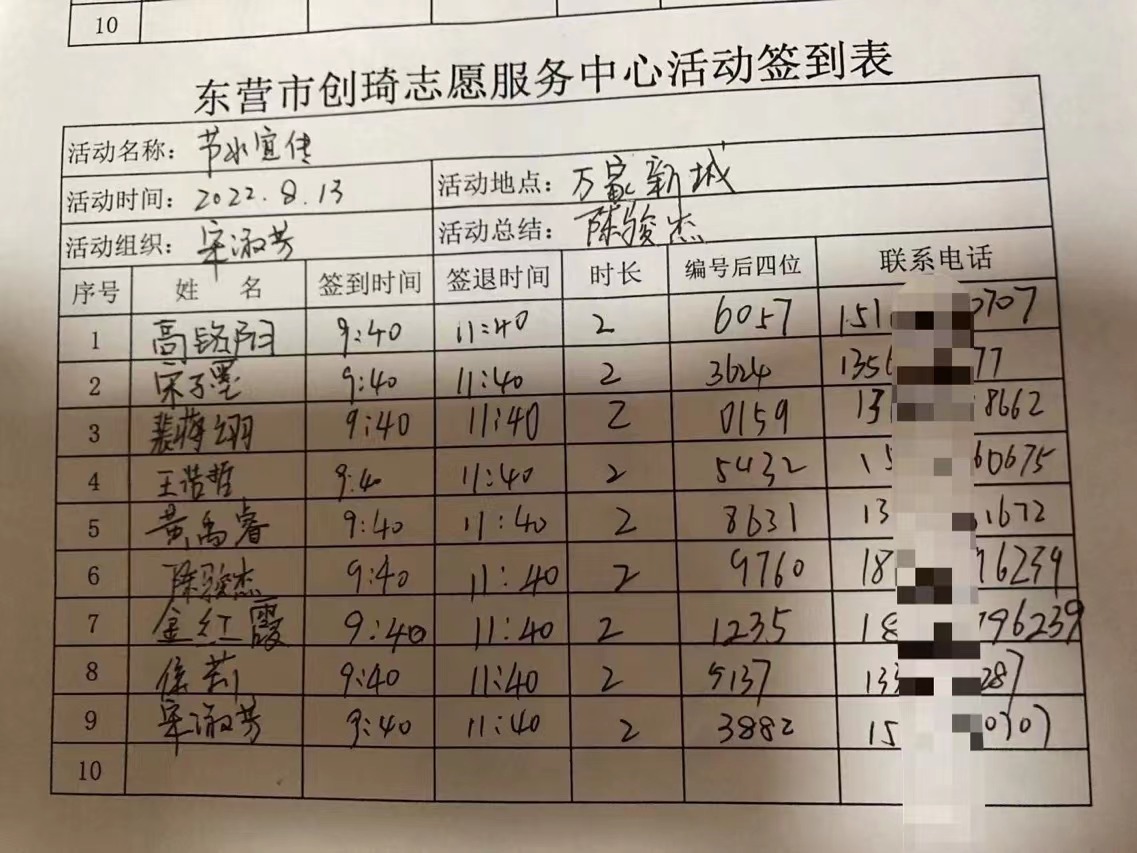 10
东营市创琦志愿服务中心活动签到表
活动名称：节水宣传
活动时间：2022.8.13 活动地点：万家新城
活动组织：宋淑芳 活动总结：陈骏杰
序号 姓名 签到时间 签退时间 时长 编号后四位 联系电话
1 高铭阳 9:40 11:40 2 6057 151 0707
2 宋子墨 9:40 11:40 2 3624 1356 77
3 9:40 11:40 2 0159 13 8662
4 王浩哲 9:40 11:40 2 5432 15 60675
5 黄禹睿 9:40 11:40 2 8631 13 1672
6 陈骏杰 9:40 11:40 2 9760 18 96239
7 金红霞 9:40 11:40 2 1235 18 796239
8 徐莉 9:40 11:40 2 5137 133 287
9 宋淑芳 9:40 11:40 2 3882 15 0707
10